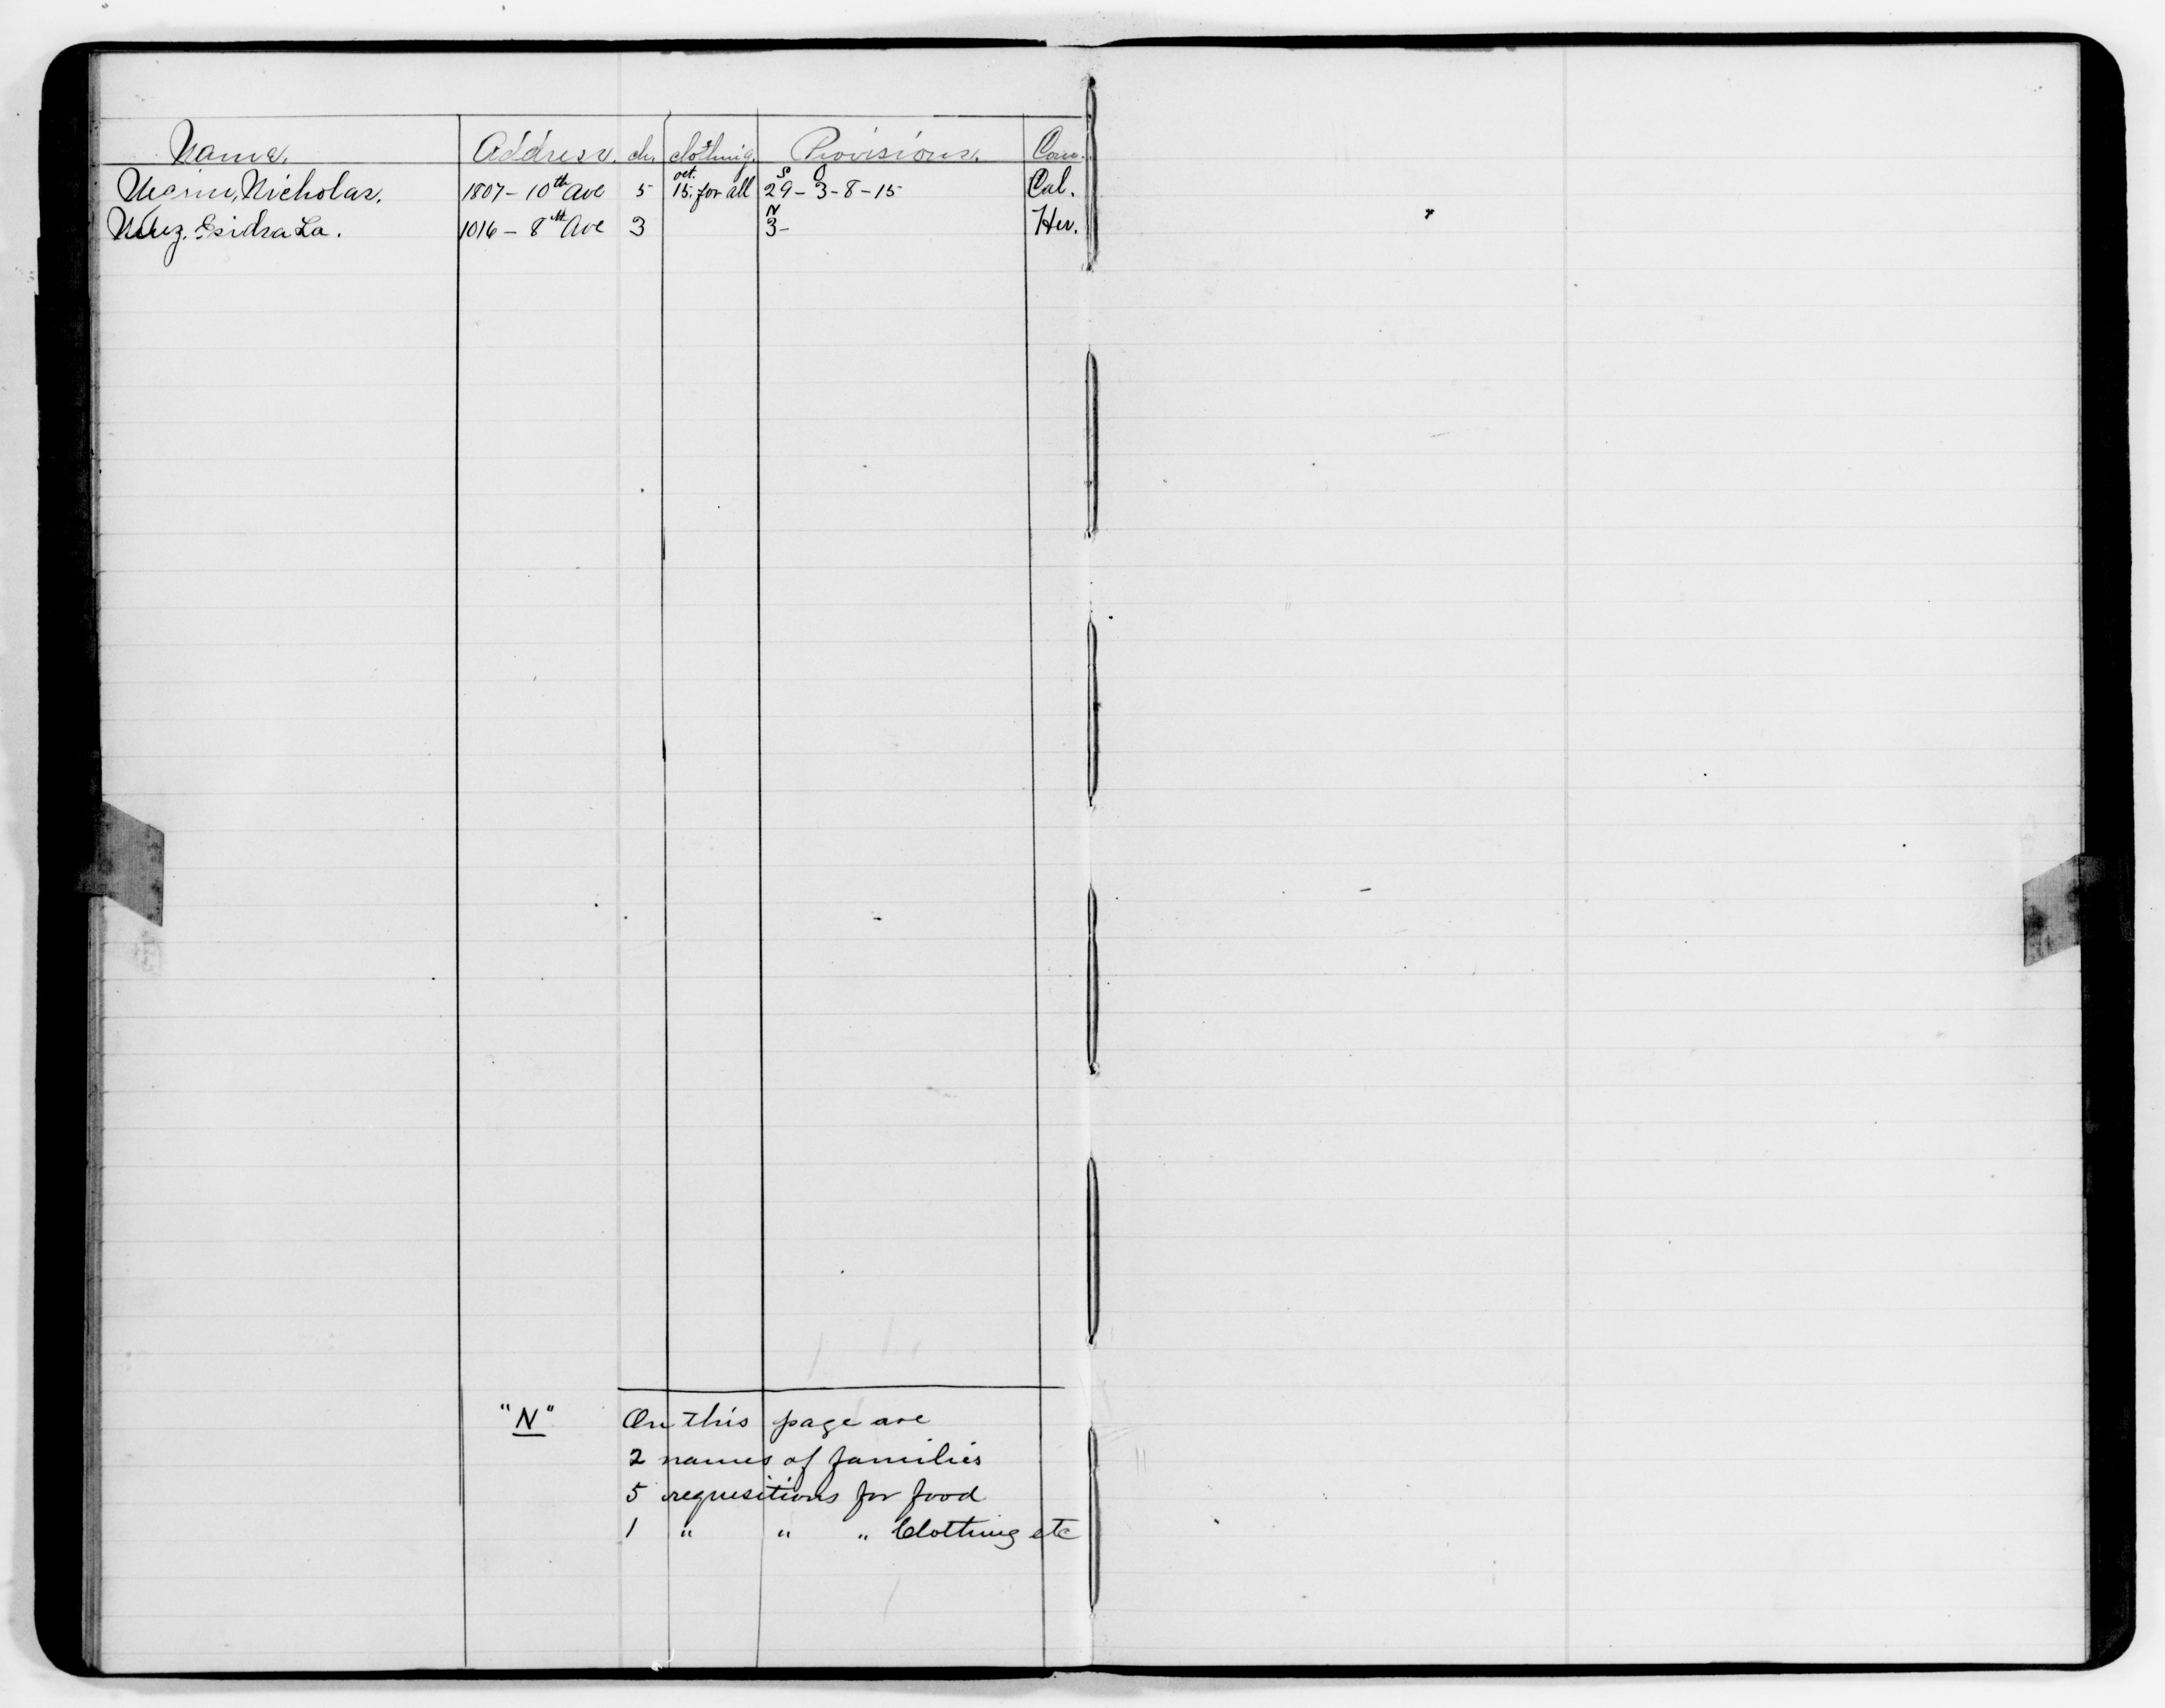 Name. Address. ch. clothing. Provisions. Com.
Nicholas. 1807 - 10th Ave 5 oct. 15. for all S O 29 - 3 - 8 - 15 Cal.
Esidra La. 1016 - 8th Ave 3 N 3 - Her.
"N" On this page are
2 names of families
5 requisitions for food
1 " " " Clothing etc